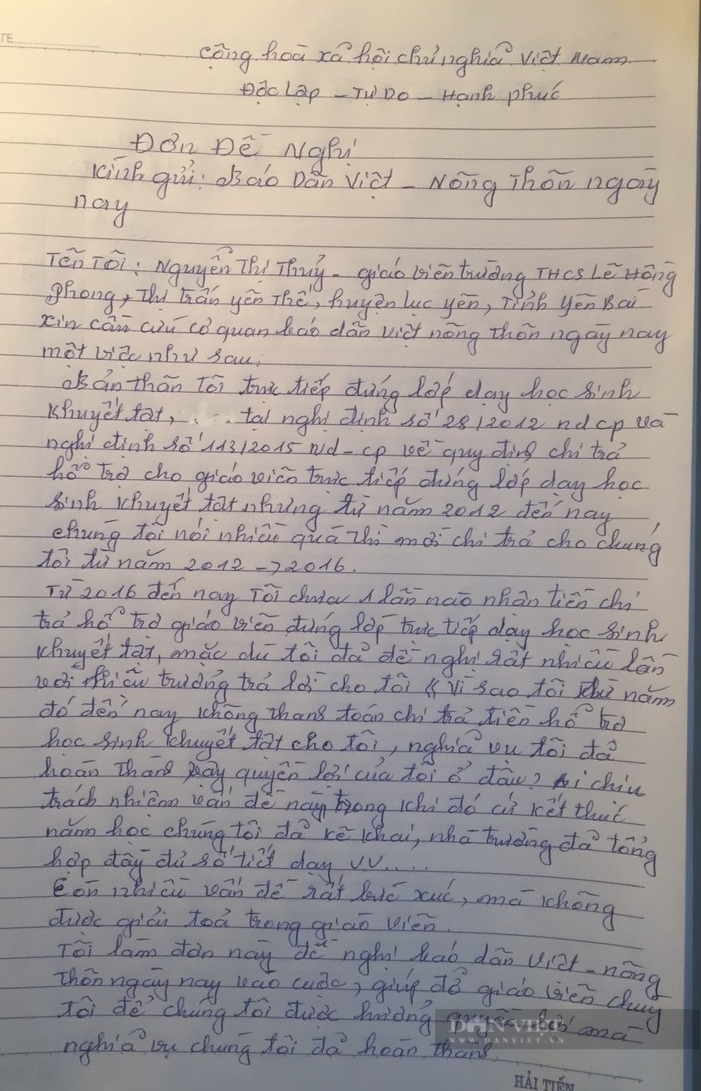 TE
Cộng hoà xã hội chủ nghĩa Việt Nam
Độc Lập - Tự Do - Hạnh phúc
Đơn Đề Nghị
Kính gửi: Báo Dân Việt - Nông Thôn ngày
nay
Tên Tôi: Nguyễn Thị Thuỷ - giáo viên trường THCS Lê Hồng
Phong, Thị trấn yên Thế, huyện lục yên, Tỉnh Yên Bái
xin cầu cứu cơ quan báo dân việt nông thôn ngày nay
một việc như sau:
Bản thân Tôi trực tiếp đứng lớp dạy học sinh
khuyết tật, tại nghị định số 28/2012 nd cp và
nghị định số 113/2015 Nd-cp về quy định chi trả
hỗ trợ cho giáo viên trực tiếp đứng lớp dạy học
sinh khuyết tật nhưng từ năm 2012 đến nay
chúng tôi nói nhiều quá thì mới chi trả cho chúng
tôi từ năm 2012 -> 2016.
Từ 2016 đến nay Tôi chưa 1 lần nào nhận tiền chi
trả hỗ trợ giáo viên đứng lớp trực tiếp dạy học sinh
khuyết tật, mặc dù tôi đã đề nghị rất nhiều lần
với nhiều trường trả lời cho tôi « Vì sao tôi từ năm
đó đến nay không thanh toán chi trả tiền hỗ trợ
học sinh khuyết tật cho tôi, nghĩa vụ tôi đã
hoàn thành vậy quyền lợi của tôi ở đâu? Ai chịu
trách nhiệm vấn đề này, trong khi đó cứ kết thúc
năm học chúng tôi đã kê khai, nhà trường đã tổng
hợp đầy đủ số tiết dạy VV....
Còn nhiều vấn đề rất bức xúc, mà không
được giải toả trong giáo viên.
Tôi làm đơn này đề nghị báo dân Việt - nông
Thôn ngày nay vào cuộc, giúp đỡ giáo viên chúng
tôi để chúng tôi được hưởng quyền lợi mà
nghĩa vụ chúng tôi đã hoàn thành.
DÂN VIỆT
WWW.DANVIET.VN
HẢI TIẾN